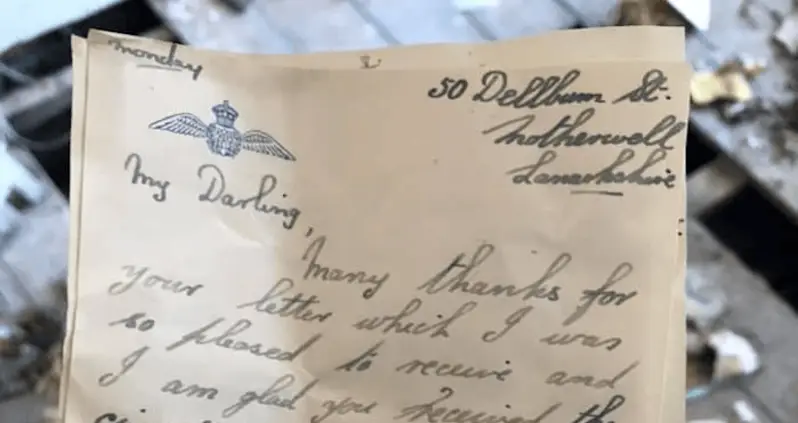 Monday
50 Dellburn St.
Motherwell
Lanarkshire
My Darling,
Many thanks for
your letter which I was
so pleased to receive and
I am glad you received the